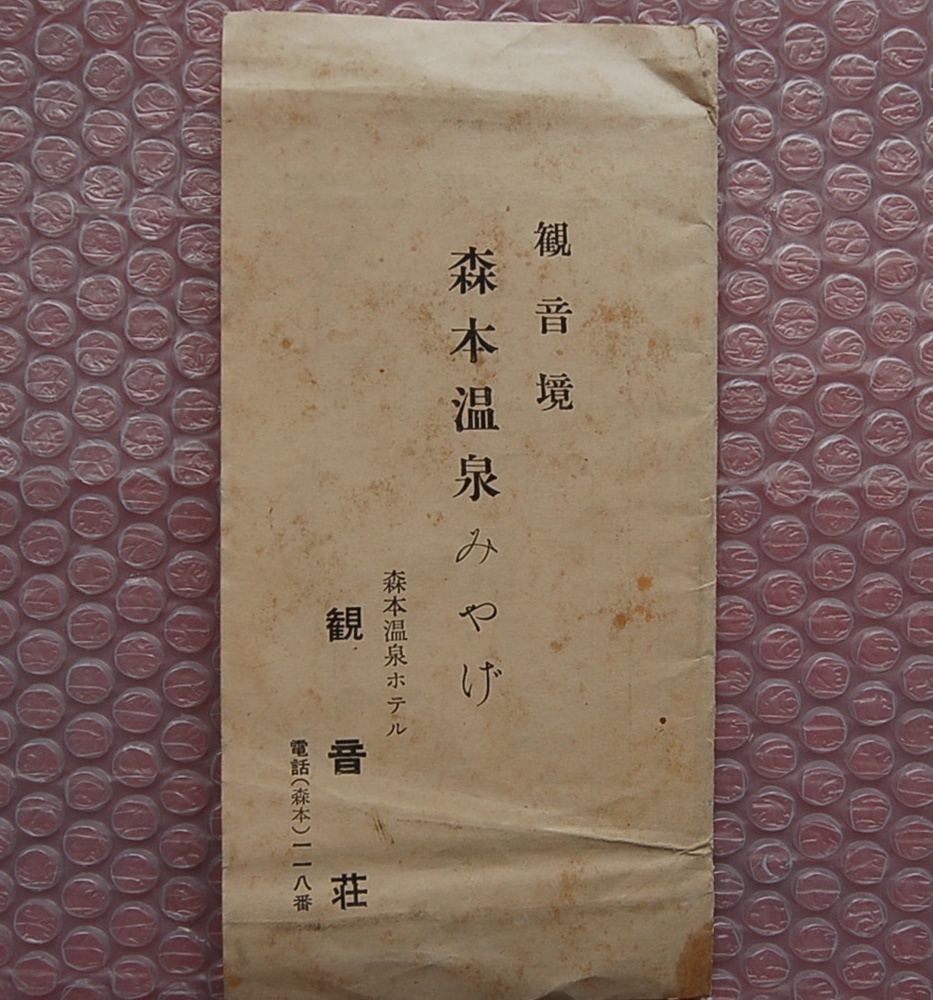 観音境
森本温泉みやげ
森本温泉ホテル
観音荘
電話(森本)一一八番